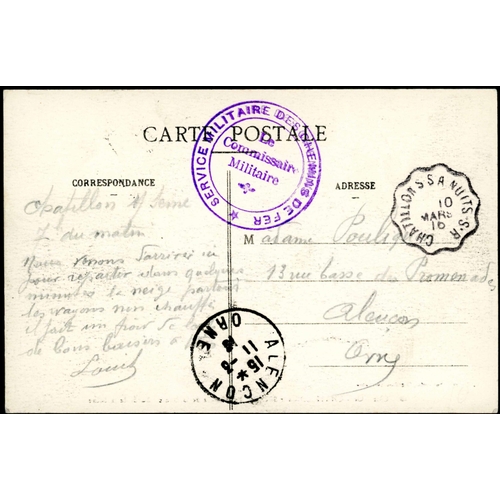 CARTE POSTALE
SERVICE MILITAIRE DES CHEMINS DE FER
Le
Commissaire
Militaire
CORRESPONDANCE
ADRESSE
CHATILLON S S A NUITS-S-R
10
MARS
16
Chatillon s/ Seine
7h du matin
Nous venons d'arriver
pour repartir dans quelques
minutes la neige partout
les wagons non chauffés
il fait un froid de
de bons baisers
Louis
Madame
13 rue basse des Promenades
Alençon
Orne
ALENÇON
ORNE
15
11 -3
16